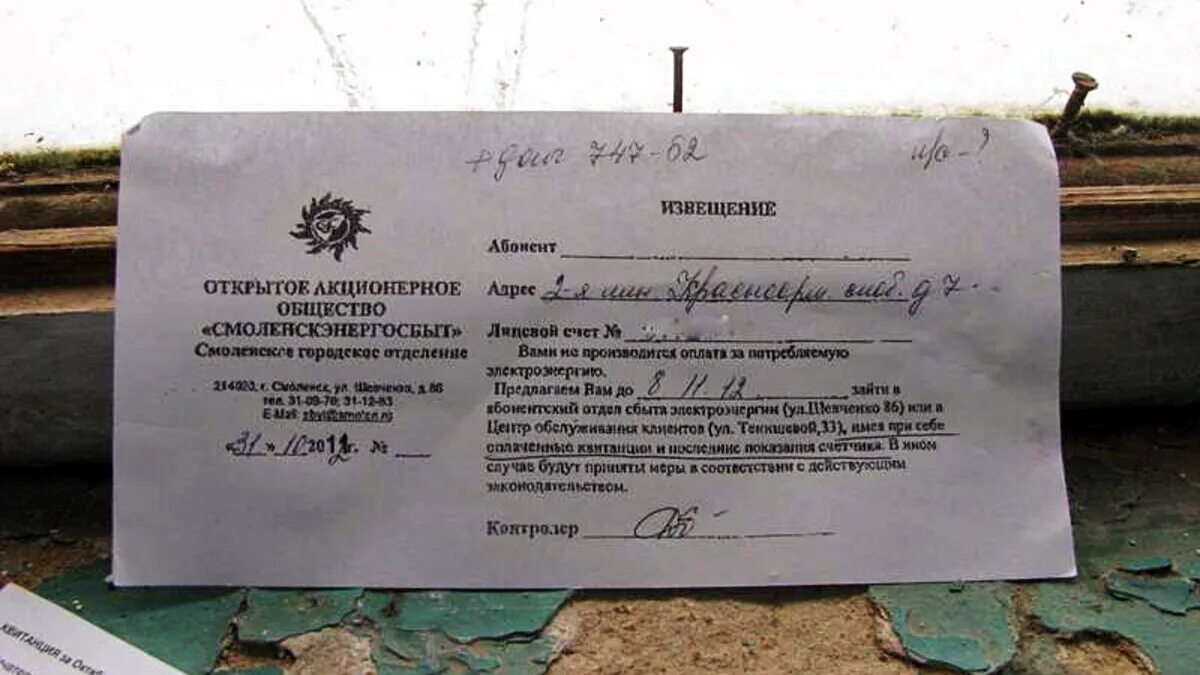 долг 747-62
п/о - ?
ОТКРЫТОЕ АКЦИОНЕРНОЕ
ОБЩЕСТВО
«СМОЛЕНСКЭНЕРГОСБЫТ»
Смоленское городское отделение
214020, г. Смоленск, ул. Шевченко, д.86
тел. 31-09-70; 31-12-83
E-Mail: sbyt@smolen.ru
«31» 10 2012г. №
ИЗВЕЩЕНИЕ
Абонент
Адрес 2-я лин. Красноарм. слоб. д 7
Лицевой счет №
Вами не производится оплата за потребляемую
электроэнергию.
Предлагаем Вам до 8 11.12 зайти в
абонентский отдел сбыта электроэнергии (ул.Шевченко 86) или в
Центр обслуживания клиентов (ул. Тенишевой,33), имея при себе
оплаченные квитанции и последние показания счетчика. В ином
случае будут приняты меры в соответствии с действующим
законодательством.
Контролер
КВИТАНЦИЯ за Октяб